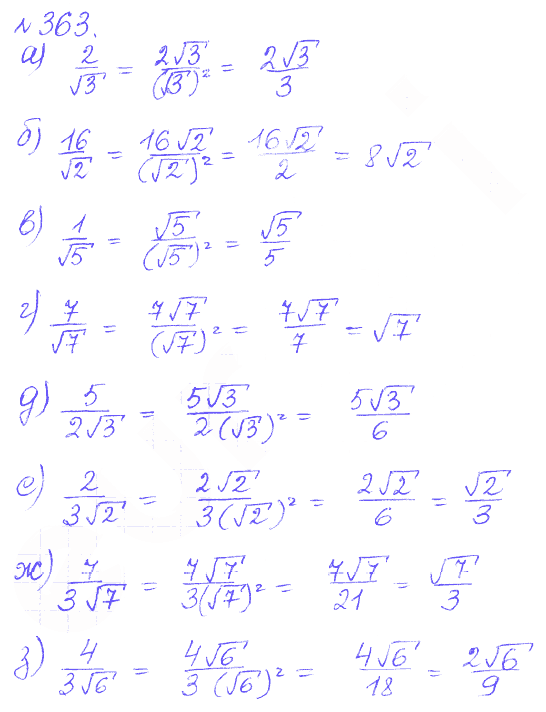 № 363.
а) 2/√3 = 2√3/(√3)² = 2√3/3
б) 16/√2 = 16√2/(√2)² = 16√2/2 = 8√2
в) 1/√5 = √5/(√5)² = √5/5
г) 7/√7 = 7√7/(√7)² = 7√7/7 = √7
д) 5/2√3 = 5√3/2(√3)² = 5√3/6
е) 2/3√2 = 2√2/3(√2)² = 2√2/6 = √2/3
ж) 7/3√7 = 7√7/3(√7)² = 7√7/21 = √7/3
з) 4/3√6 = 4√6/3(√6)² = 4√6/18 = 2√6/9